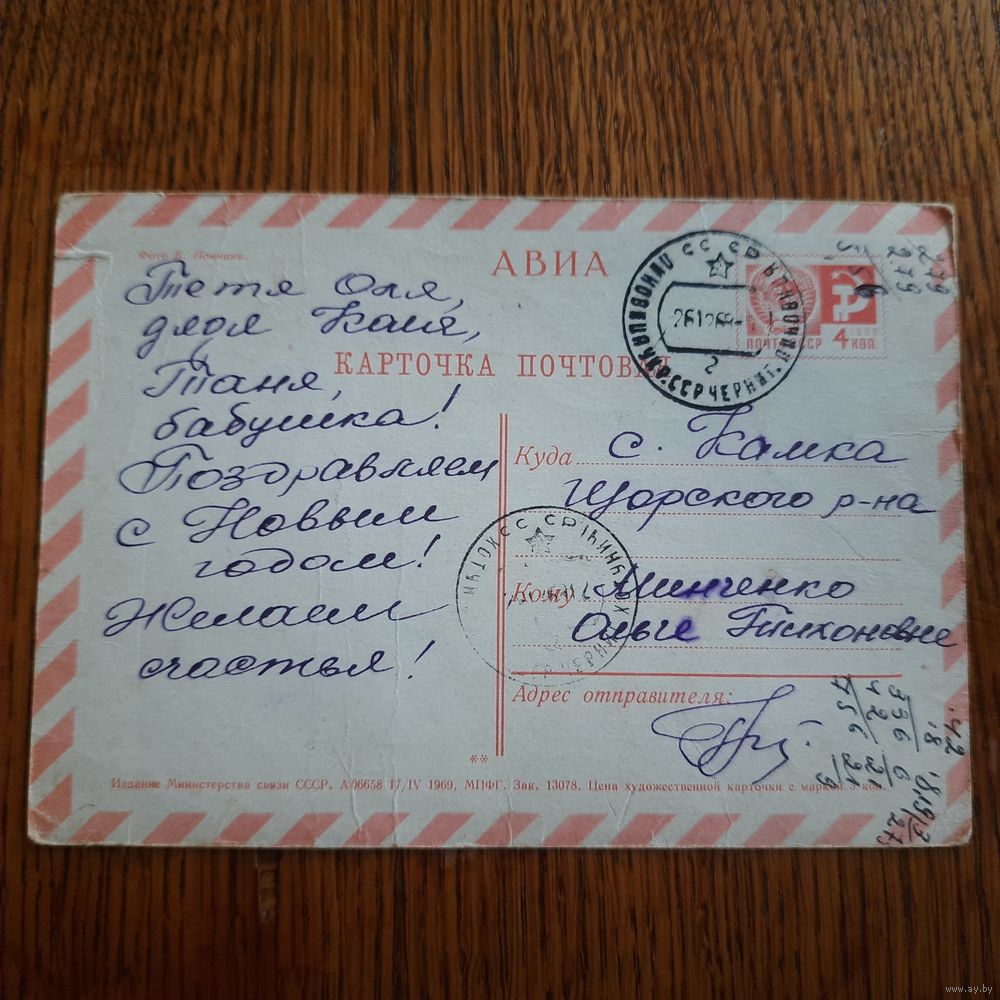 АВИА
КАРТОЧКА ПОЧТОВАЯ
Фото
Тетя Оля,
дядя Коля,
Таня,
бабушка!
Поздравляем
с Новым
годом!
Желаем
счастья!
ПОЧТА СССР
4 КОП.
2
Куда с. Камка
Щорского р-на
Кому Минченко
Ольге Тихоновне
Адрес отправителя:
**
Издание Министерства связи СССР. А06658 17/IV 1969. МПФГ. Зак. 13078. Цена художественной карточки с маркой 5 коп.
279
279
336
42
756
www.ay.by